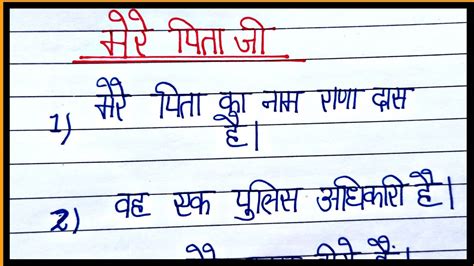 मेरे पिता जी
1) मेरे पिता का नाम राणा दास
है।
2) वह एक पुलिस अधिकारी है।